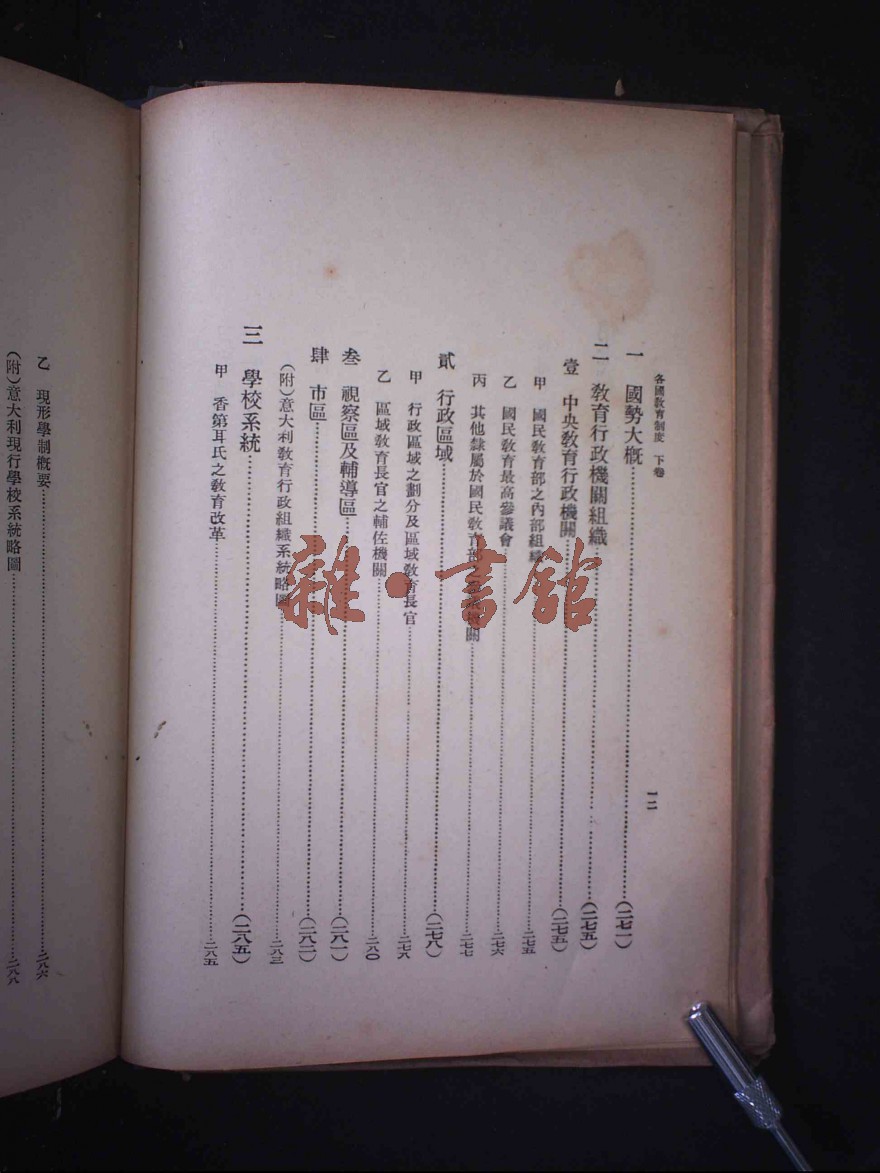 各國教育制度　下卷
一二
一　國勢大槪……(二七一)
二　教育行政機關組織……(二七五)
壹　中央教育行政機關……(二七五)
甲　國民教育部之內部組織……二七五
乙　國民教育最高參議會……二七六
丙　其他隸屬於國民教育部之　　機關……二七七
貳　行政區域……(二七八)
甲　行政區域之劃分及區域教育長官……二七八
乙　區域教育長官之輔佐機關……二八〇
叁　視察區及輔導區……(二八一)
肆　市區……(二八二)
(附)意大利教育行政組織系統略圖……二八三
三　學校系統……(二八五)
甲　香第耳氏之教育改革……二八五
乙　現形學制概要……二八六
(附)意大利現行學校系統略圖……二八八
雜·書館